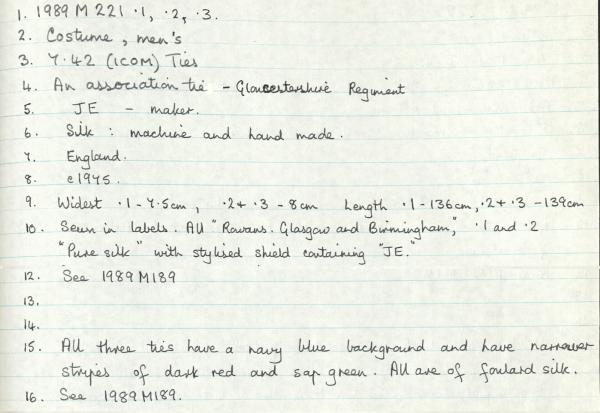 1. 1989 M 221 .1, .2, .3.
2. Costume, men's
3. 7.42 (ICOM) Ties
4. An association tie - Gloucestershire Regiment
5. JE - maker.
6. Silk : machine and hand made.
7. England.
8. c1975.
9. Widest .1 - 7.5cm, .2 + .3 - 8cm Length .1 - 136cm, .2 + .3 - 139cm
10. Sewn in labels. All "Rowans. Glasgow and Birmingham," .1 and .2
"Pure silk" with stylised shield containing "JE."
12. See 1989 M189
13.
14.
15. All three ties have a navy blue background and have narrower
stripes of dark red and sap green. All are of foulard silk.
16. See 1989 M189.